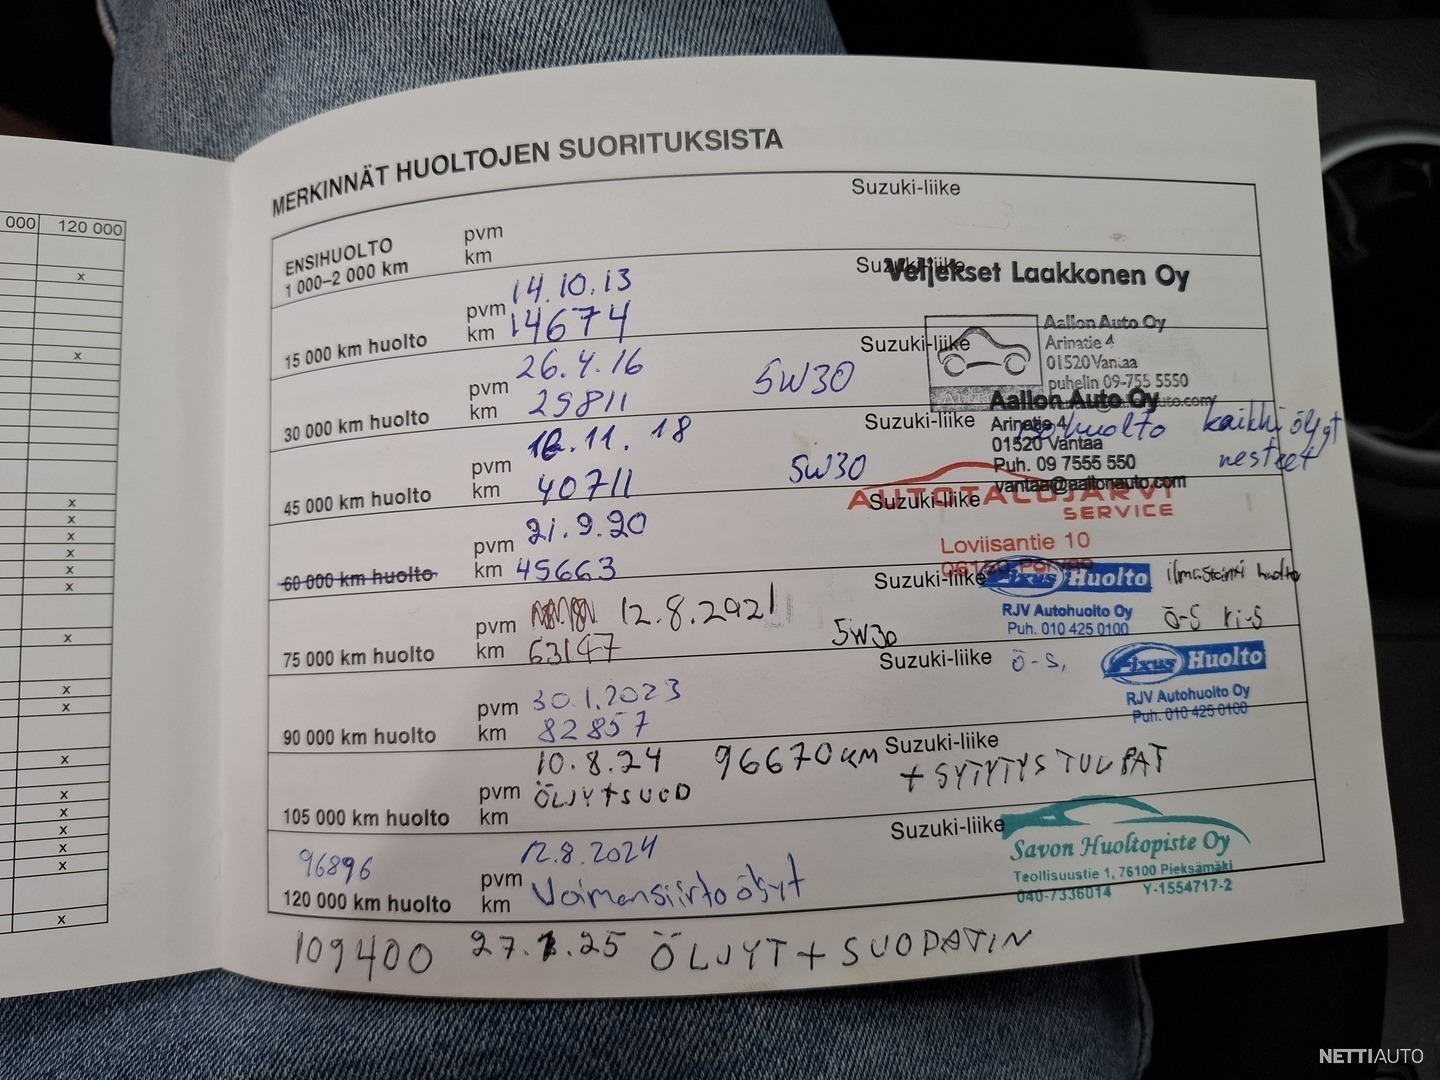 000 120 000
MERKINNÄT HUOLTOJEN SUORITUKSISTA
Suzuki-liike
ENSIHUOLTO pvm
1 000–2 000 km km
Suzuki-liike Veljekset Laakkonen Oy
pvm 14.10.13
15 000 km huolto km 14674
Suzuki-liike
Aallon Auto Oy
Arinatie 4
01520 Vantaa
puhelin 09-755 5550
pvm 26.4.16 5W30
30 000 km huolto km 29811
Suzuki-liike
Aallon Auto Oy
Arinatie 4
01520 Vantaa
Puh. 09 7555 550
vantaa@aallonauto.com
huolto kaikki öljyt
nesteet
pvm 12.11.18 5W30
45 000 km huolto km 40711
Suzuki-liike
SERVICE
Loviisantie 10
pvm 21.9.20
60 000 km huolto km 45663
Suzuki-liike Fixus Huolto ilmastointi huolto
RJV Autohuolto Oy Ö-S ri-S
Puh. 010 425 0100
pvm 12.8.2021 5W30
75 000 km huolto km 63147
Suzuki-liike Ö-S, Fixus Huolto
RJV Autohuolto Oy
Puh. 010 425 0100
pvm 30.1.2023
90 000 km huolto km 82857
Suzuki-liike
10.8.24 96670 KM + SYTYTYSTULPAT
pvm ÖLJYT+SUOD
105 000 km huolto km
Suzuki-liike
Savon Huoltopiste Oy
Teollisuustie 1, 76100 Pieksämäki
040-7336014 Y-1554717-2
96896 12.8.2024
pvm Voimansiirto öljyt
120 000 km huolto km
109400 27.1.25 ÖLJYT + SUODATIN
NETTIAUTO